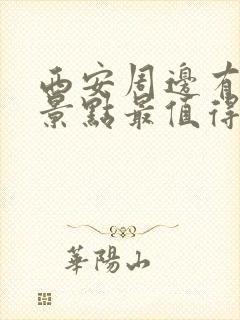 西安周邊有
景點最值得
華陽山